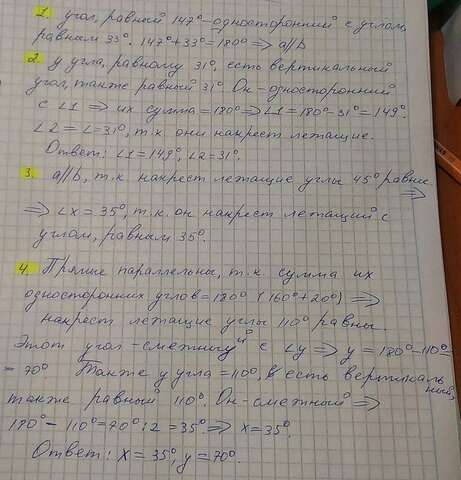 1. угол, равный 147°-односторонний с углом,
равным 33°. 147°+33°=180° ⇒ a∥b
2. у угла, равному 31°, есть вертикальный
угол, также равный 31°. Он-односторонний
с ∠1 ⇒ их сумма =180° ⇒ ∠1=180°-31°=149°.
∠2=∠=31°, т.к. они накрест лежащие.
Ответ: ∠1=149°, ∠2=31°.
3. a∥b, т.к. накрест лежащие углы 45° равны ⇒
⇒ ∠x=35°, т.к. он накрест лежащий с
углом, равным 35°.
4. Прямые параллельны, т.к. сумма их
односторонних углов=120° (160°+20°) ⇒
накрест лежащие углы 110° равны.
Этот угол-смежный с ∠y ⇒ y=180°-110°=
=70°. Также у угла =110°, в есть вертикальный,
также равный 110°. Он-смежный ⇒
180°-110°=70°:2=35° ⇒ x=35°.
Ответ: x=35°, y=70°.